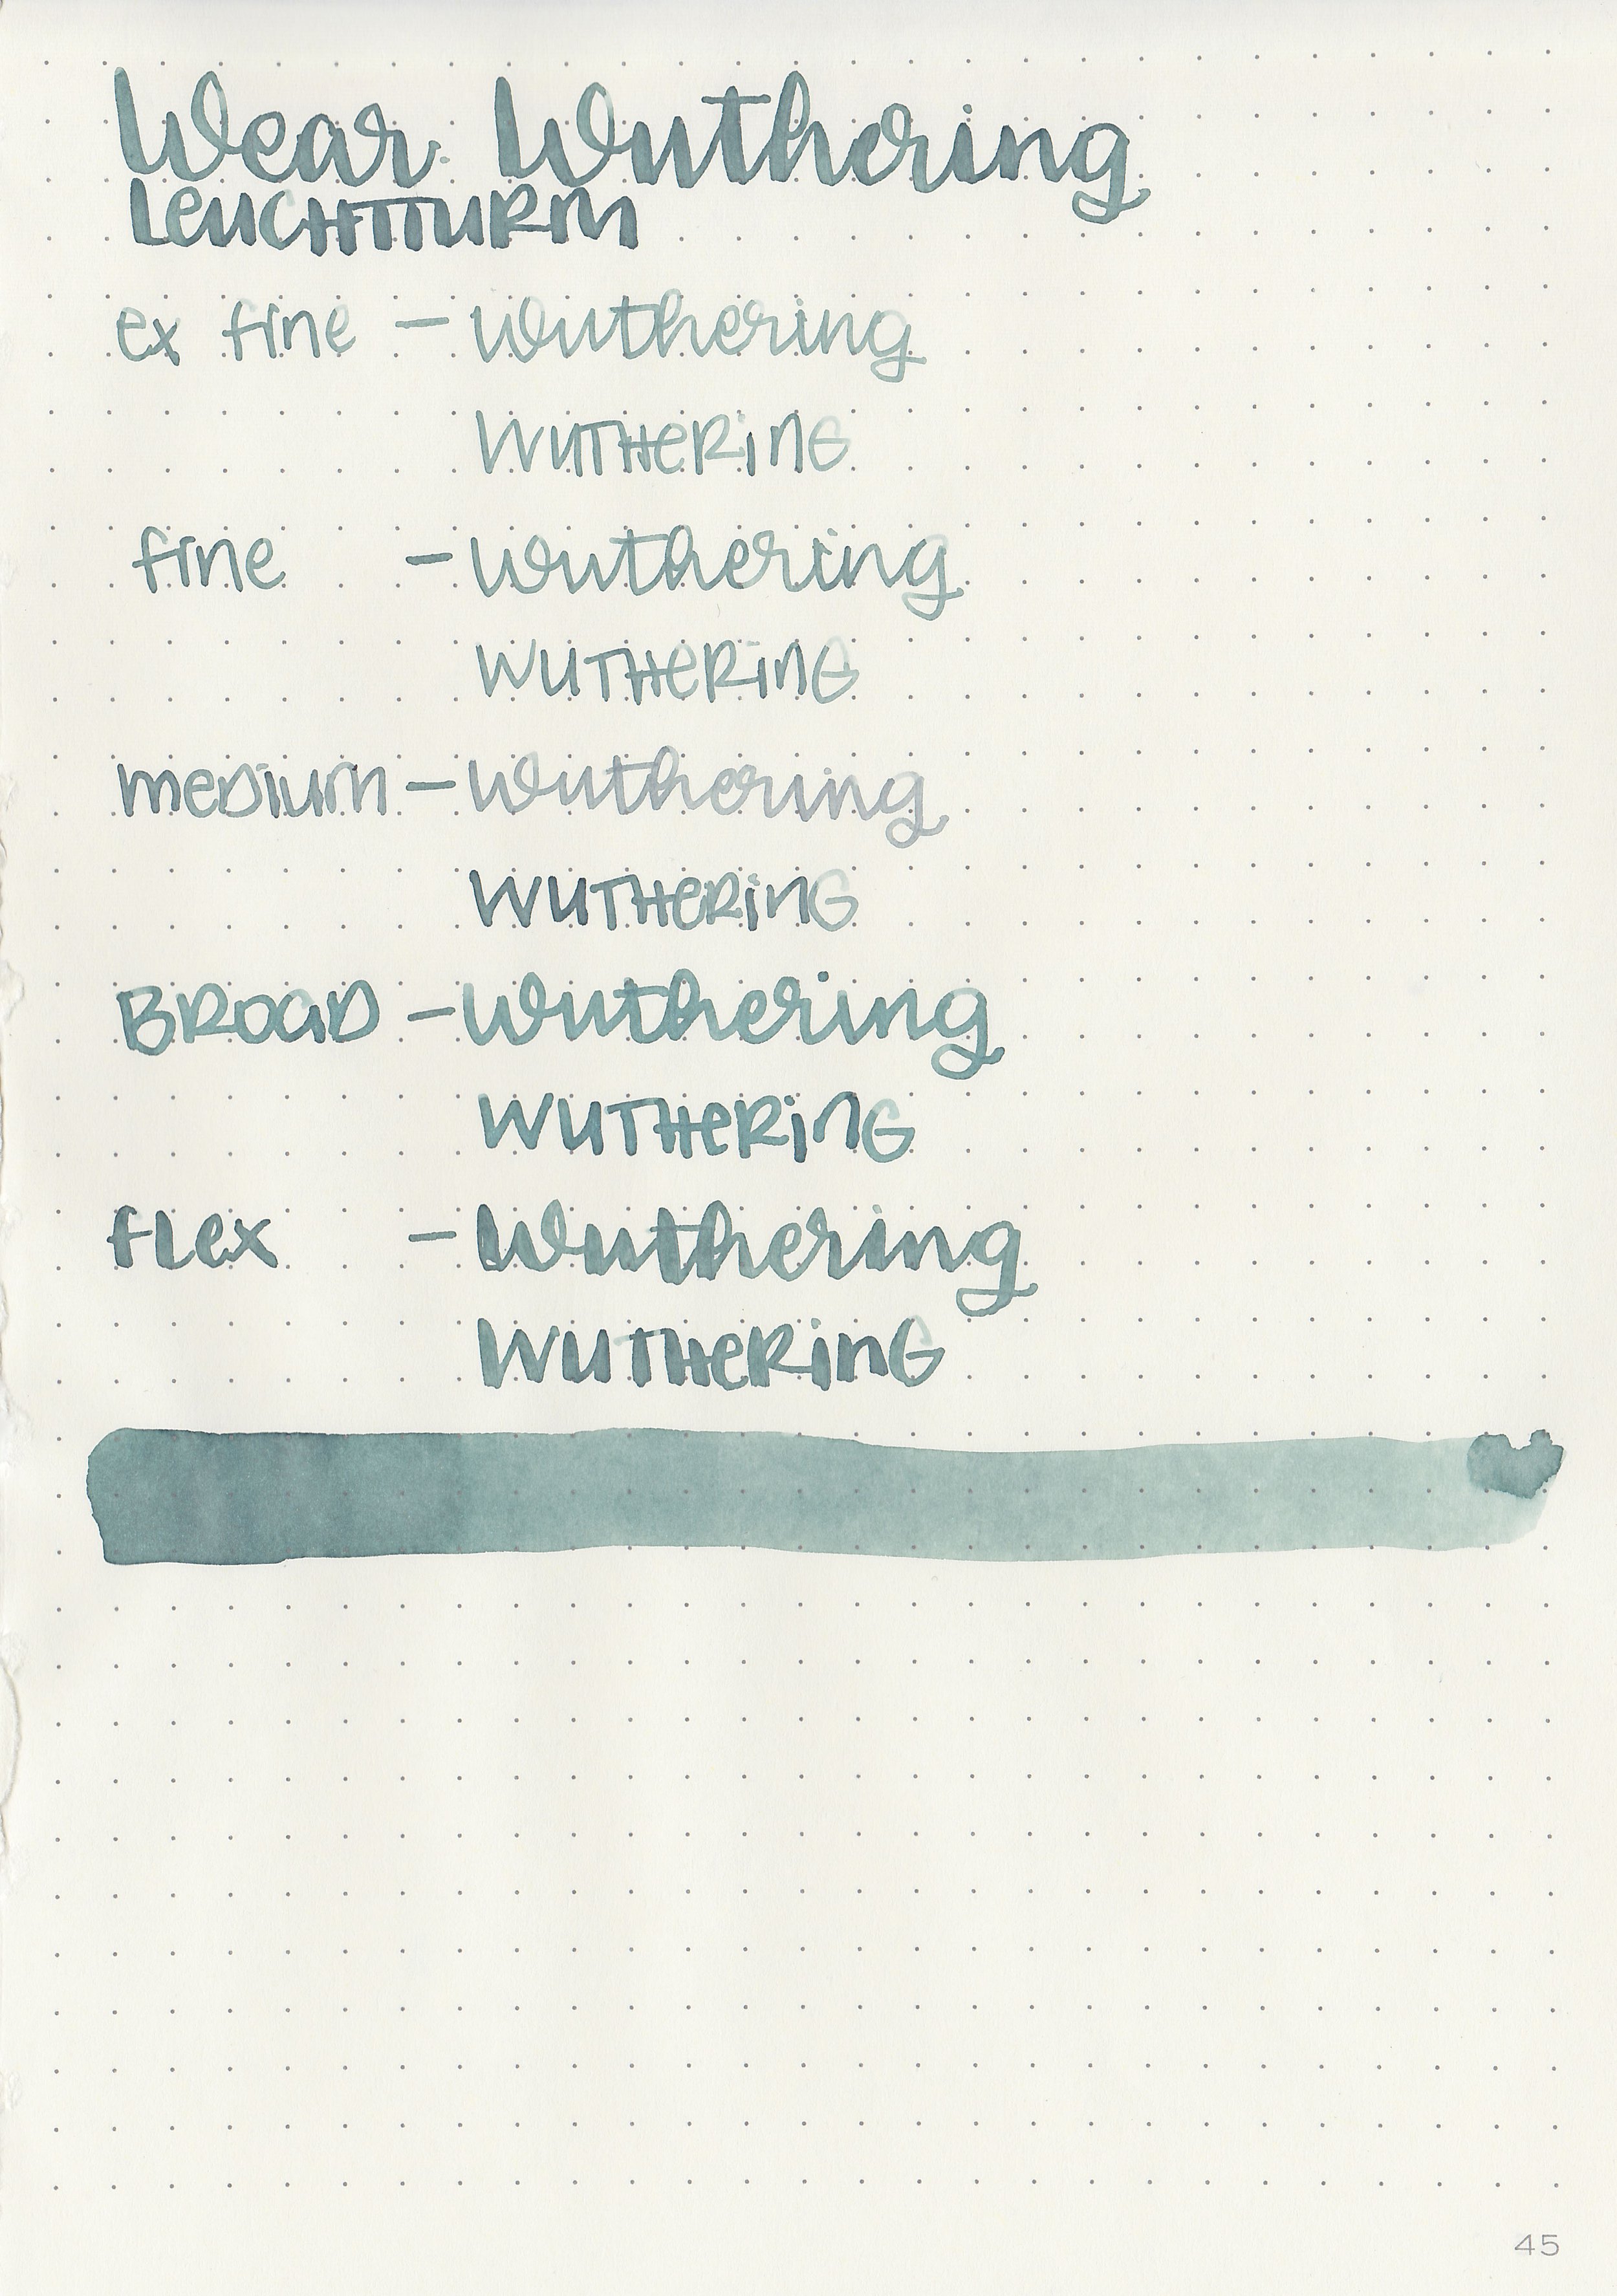 Wear Wuthering
LEUCHTTURM
ex fine - Wuthering
WUTHERING
fine - Wuthering
WUTHERING
medium - Wuthering
WUTHERING
BROAD - Wuthering
WUTHERING
flex - Wuthering
WUTHERING
45